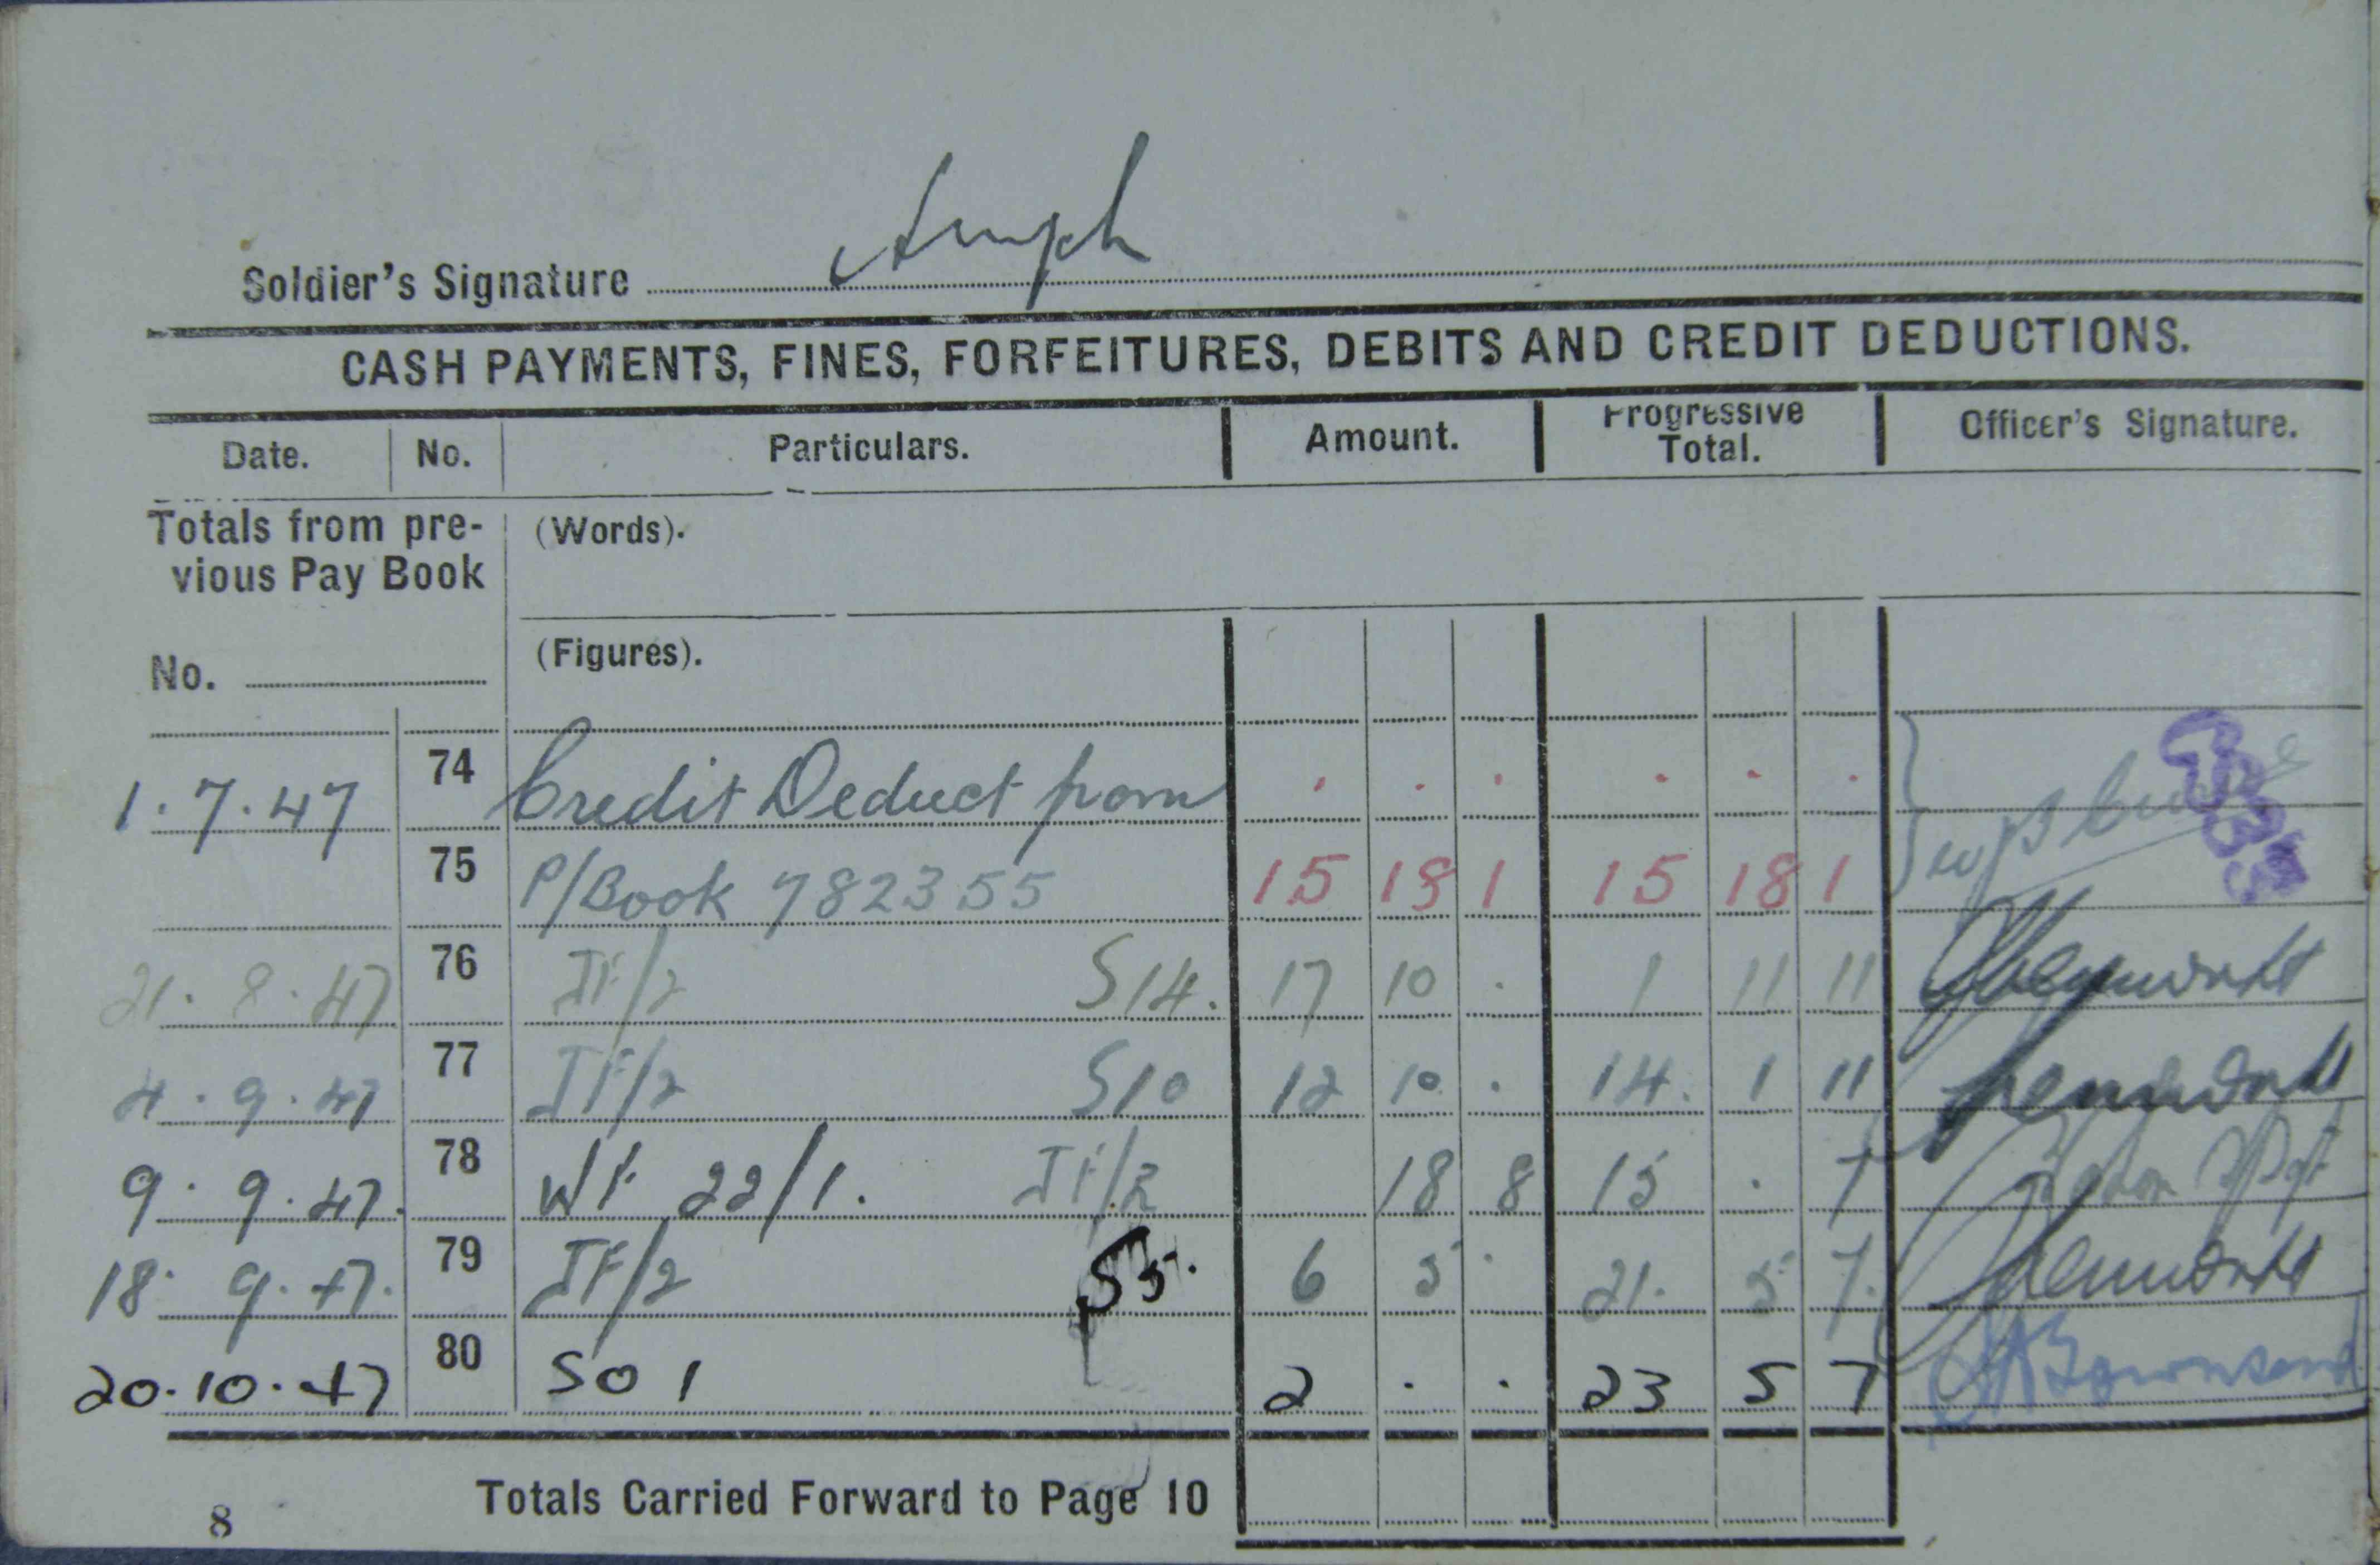 Soldier's Signature
CASH PAYMENTS, FINES, FORFEITURES, DEBITS AND CREDIT DEDUCTIONS.
Date. No. Particulars. Amount. Progressive Total. Officer's Signature.
Totals from pre-
vious Pay Book
(Words).
No.
(Figures).
1.7.47 74 Credit Deduct from . . . . . .
75 P/Book 782355 15 18 1 15 18 1
21.8.47 76 JF/2 S14. 17 10 . 1 11 11
4.9.47 77 JF/2 S10 12 10 . 14. 1 11
9.9.47. 78 WF 22/1. JF/2 18 8 15 . 7
18.9.47. 79 JF/2 S5. 6 5 . 21. 5 7.
20.10.47 80 SO 1 2 . . 23 5 7
Totals Carried Forward to Page 10
8